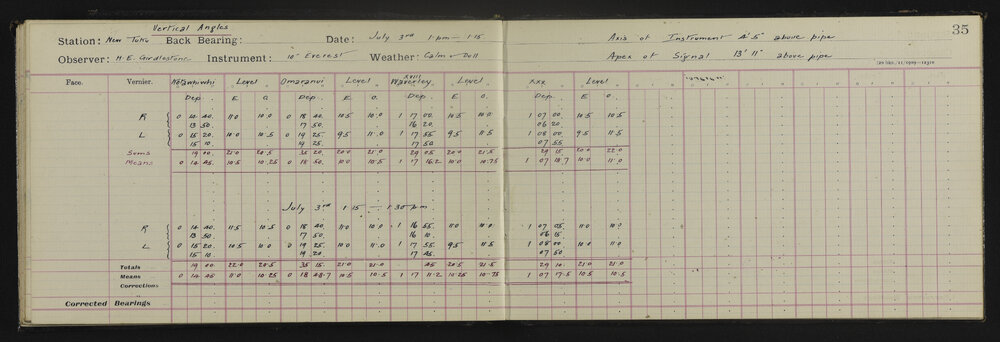 Vertical Angles
35
Station: New Tuhu Back Bearing: Date: July 3rd 1 pm — 1·15 Axis of Instrument 4' 5" above pipe
Observer: H.E. Girdlestone Instrument: 10" Everest Weather: Calm & Dull Apex of Signal 13' 11" above pipe
Face. Vernier. Level Omaranui Level XVIII Waverley Level XXX Level
Dep. E O Dep. E O. Dep. E O. Dep. E O.
R 0 14 40. 11·0 10·0 0 18 40. 10·5 10·0 1 17 00. 10·5 10·0 1 07 00. 10·5 10·5
13 50. 17 50. 16 20. 06 20.
L 0 15 20. 10·0 10·5 0 19 25. 9·5 11·0 1 17 55 9·5 11·5 1 08 00 9·5 11·5
15 10. 19 25. 17 50 07 55
Sums 19 00. 21·0 20·5 35 20 20·0 21·0 29 05 20·0 21·5 29 15 20·0 22·0
Means 0 14 45. 10·5 10·25 0 18 50. 10·0 10·5 1 17 16·2 10·0 10·75 1 07 18·7 10·0 11·0
July 3rd 1·15 — 1·30 pm
R 0 14 40 11·5 10·5 0 18 40. 11·0 10·0 1 16 55. 11·0 10·0 1 07 05. 11·0 11·0
13 50. 17 50. 16 10. 06 15
L 0 15 20. 10·5 10·0 0 19 25 10·0 11·0 1 17 55. 9·5 11·5 1 08 00 10·0 11·0
15 10. 19 20. 17 45. 07 50
Totals 19 00. 22·0 20·5 35 15. 21·0 21·0 45 20·5 21·5 29 10. 21·0 21·0
Means 0 14 45 11·0 10·25 0 18 48·7 10·5 10·5 1 17 11·2 10·25 10·75 1 07 17·5 10·5 10·5
Corrections
Corrected Bearings